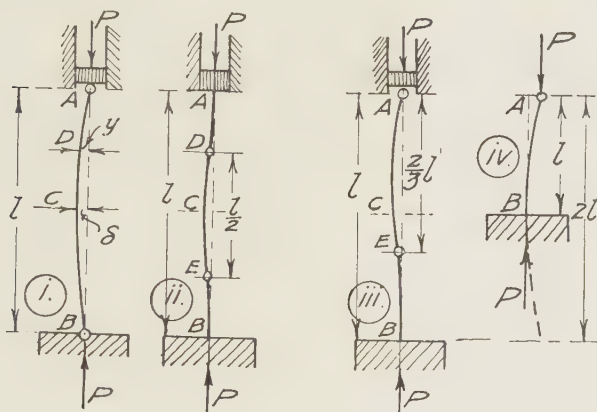 P
A
D
y
C
δ
l
i.
B
P
P
A
D
C
l
l/2
E
ii
B
P
P
A
l
2/3 l
C
E
iii
B
P
P
A
iv.
l
B
2l
P